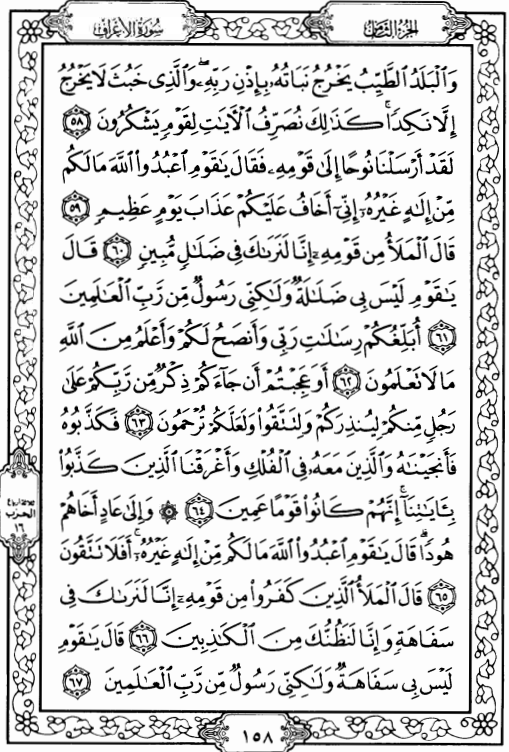 الجزء الثامن
سورة الأعراف
وَٱلْبَلَدُ ٱلطَّيِّبُ يَخْرُجُ نَبَاتُهُۥ بِإِذْنِ رَبِّهِۦ ۖ وَٱلَّذِى خَبُثَ لَا يَخْرُجُ
إِلَّا نَكِدًا ۚ كَذَٰلِكَ نُصَرِّفُ ٱلْآيَٰتِ لِقَوْمٍ يَشْكُرُونَ ٥٨
لَقَدْ أَرْسَلْنَا نُوحًا إِلَىٰ قَوْمِهِۦ فَقَالَ يَٰقَوْمِ ٱعْبُدُوا۟ ٱللَّهَ مَا لَكُم
مِّنْ إِلَٰهٍ غَيْرُهُۥٓ إِنِّىٓ أَخَافُ عَلَيْكُمْ عَذَابَ يَوْمٍ عَظِيمٍ ٥٩
قَالَ ٱلْمَلَأُ مِن قَوْمِهِۦٓ إِنَّا لَنَرَىٰكَ فِى ضَلَٰلٍ مُّبِينٍ ٦٠ قَالَ
يَٰقَوْمِ لَيْسَ بِى ضَلَٰلَةٌ وَلَٰكِنِّى رَسُولٌ مِّن رَّبِّ ٱلْعَٰلَمِينَ
٦١ أُبَلِّغُكُمْ رِسَٰلَٰتِ رَبِّى وَأَنصَحُ لَكُمْ وَأَعْلَمُ مِنَ ٱللَّهِ
مَا لَا تَعْلَمُونَ ٦٢ أَوَعَجِبْتُمْ أَن جَآءَكُمْ ذِكْرٌ مِّن رَّبِّكُمْ عَلَىٰ
رَجُلٍ مِّنكُمْ لِيُنذِرَكُمْ وَلِتَتَّقُوا۟ وَلَعَلَّكُمْ تُرْحَمُونَ ٦٣ فَكَذَّبُوهُ
فَأَنجَيْنَٰهُ وَٱلَّذِينَ مَعَهُۥ فِى ٱلْفُلْكِ وَأَغْرَقْنَا ٱلَّذِينَ كَذَّبُوا۟
بِـَٔايَٰتِنَآ ۚ إِنَّهُمْ كَانُوا۟ قَوْمًا عَمِينَ ٦٤ ۞ وَإِلَىٰ عَادٍ أَخَاهُمْ
هُودًا ۗ قَالَ يَٰقَوْمِ ٱعْبُدُوا۟ ٱللَّهَ مَا لَكُم مِّنْ إِلَٰهٍ غَيْرُهُۥٓ ۚ أَفَلَا تَتَّقُونَ
٦٥ قَالَ ٱلْمَلَأُ ٱلَّذِينَ كَفَرُوا۟ مِن قَوْمِهِۦٓ إِنَّا لَنَرَىٰكَ فِى
سَفَاهَةٍ وَإِنَّا لَنَظُنُّكَ مِنَ ٱلْكَٰذِبِينَ ٦٦ قَالَ يَٰقَوْمِ
لَيْسَ بِى سَفَاهَةٌ وَلَٰكِنِّى رَسُولٌ مِّن رَّبِّ ٱلْعَٰلَمِينَ ٦٧
ثلاثة أرباع
الحزب
١٦
١٥٨